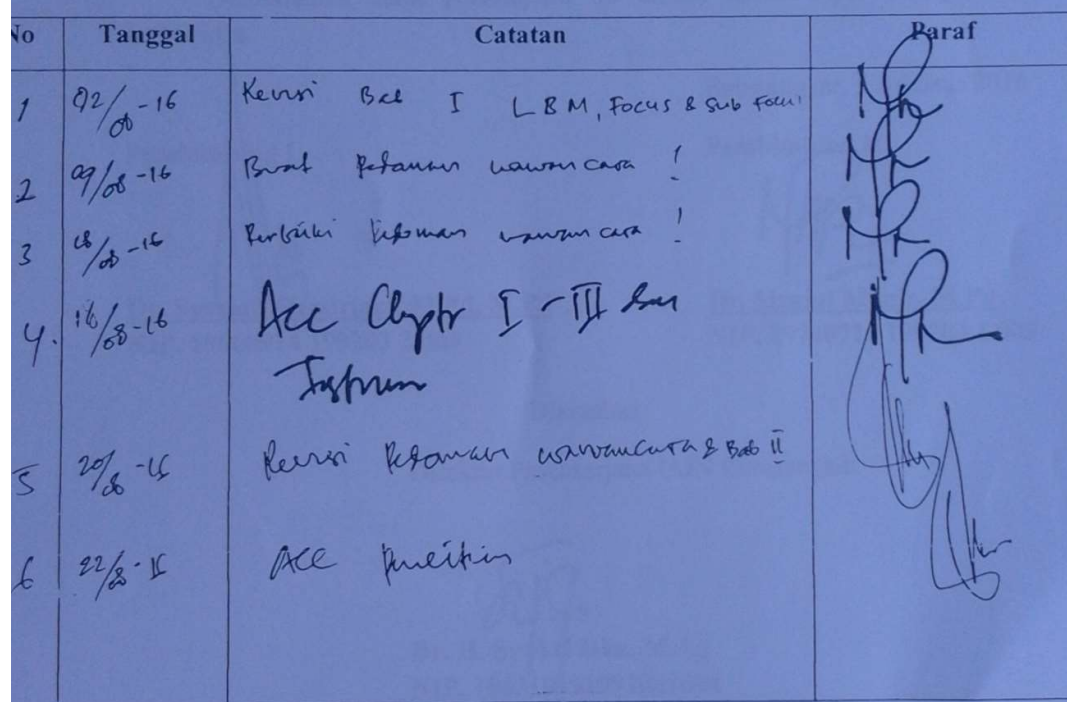 No Tanggal Catatan Paraf
1 02/08-16 Revisi Bab I LBM, Focus & Sub Focus
2 09/08-16 Buat Pedoman wawancara !
3 /08-16 Perbaiki Pedoman wawancara !
4. 16/08-16 Acc Chaptr I - III dan
Instrumen
5 20/8-16 Revisi Pedoman wawancara & Bab II
6 22/8-16 ACC Penelitian